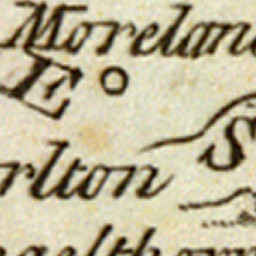 Moreland
E
S
rlton